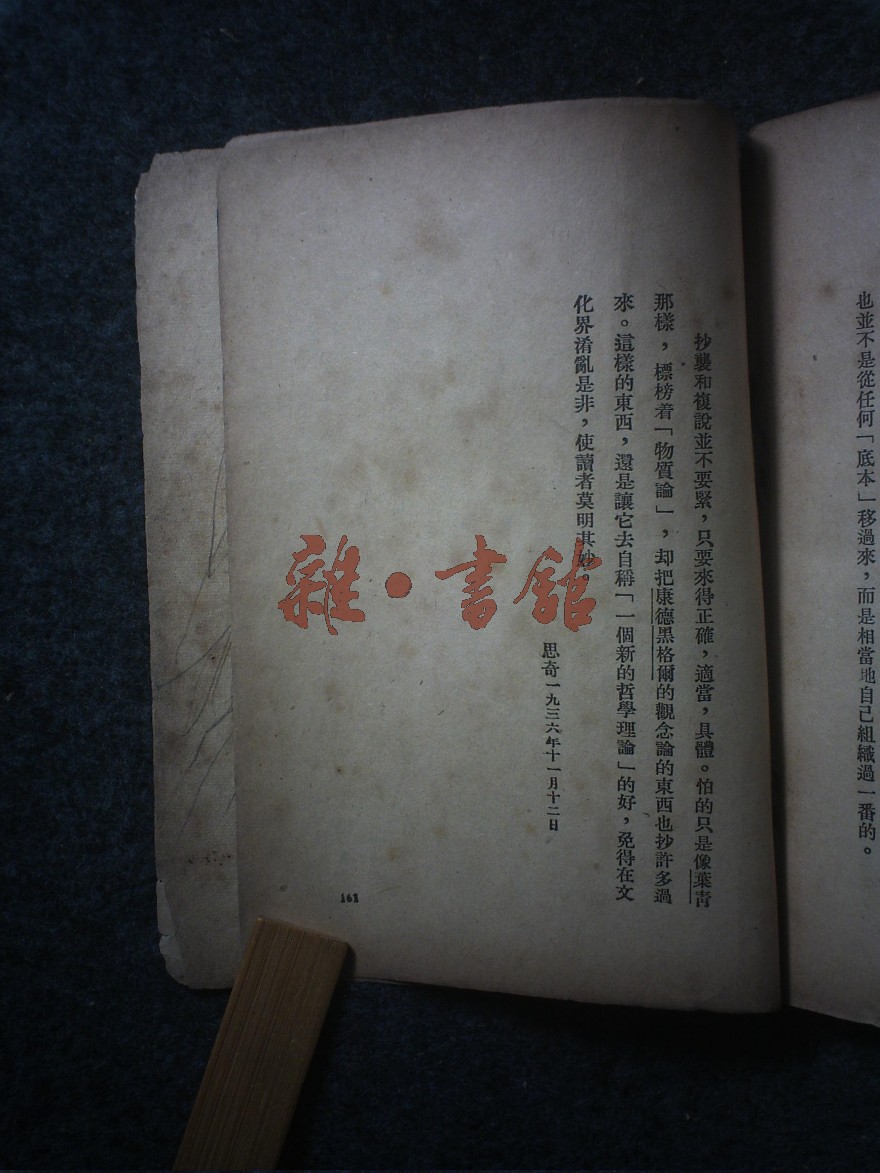 也並不是從任何「底本」移過來，而是相當地自己組織過一番的。
抄襲和複說並不要緊，只要來得正確，適當，具體。怕的只是像葉青
那樣，標榜着「物質論」，却把康德黑格爾的觀念論的東西也抄許多過
來。這樣的東西，還是讓它去自稱「一個新的哲學理論」的好，免得在文
化界淆亂是非，使讀者莫明其妙
思奇一九三六年十一月十二日
161
雜·書館